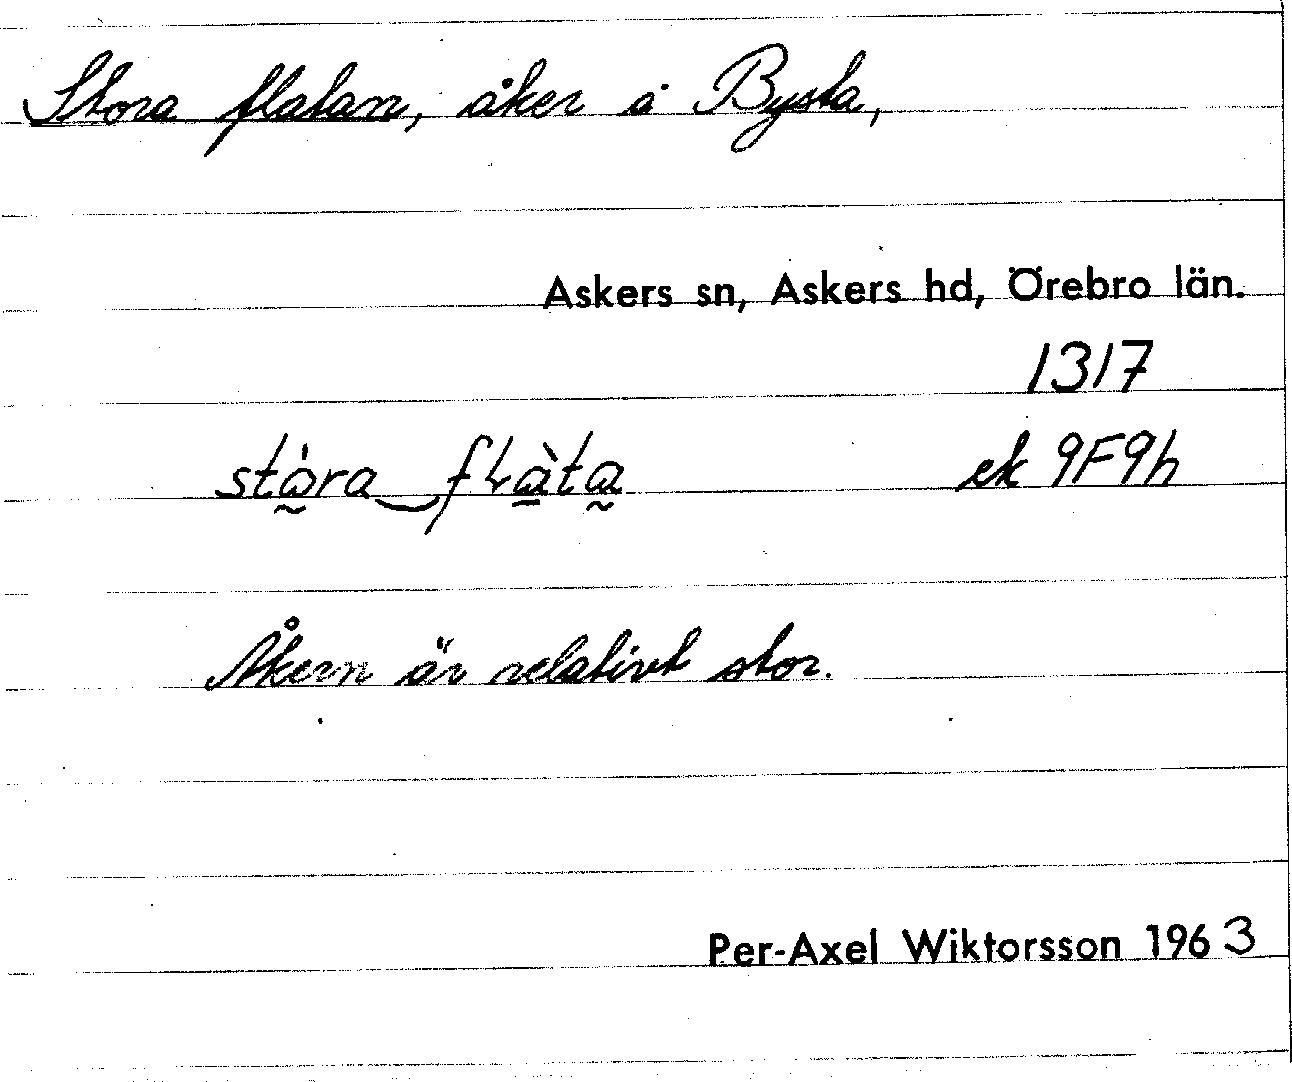 Stora flatan, åker å Bysta,
Askers sn, Askers hd, Örebro län.
1317
stò̰ra‿fɫà̱ta̰ ek 9F9h
Åkern är relativt stor.
Per-Axel Wiktorsson 1963